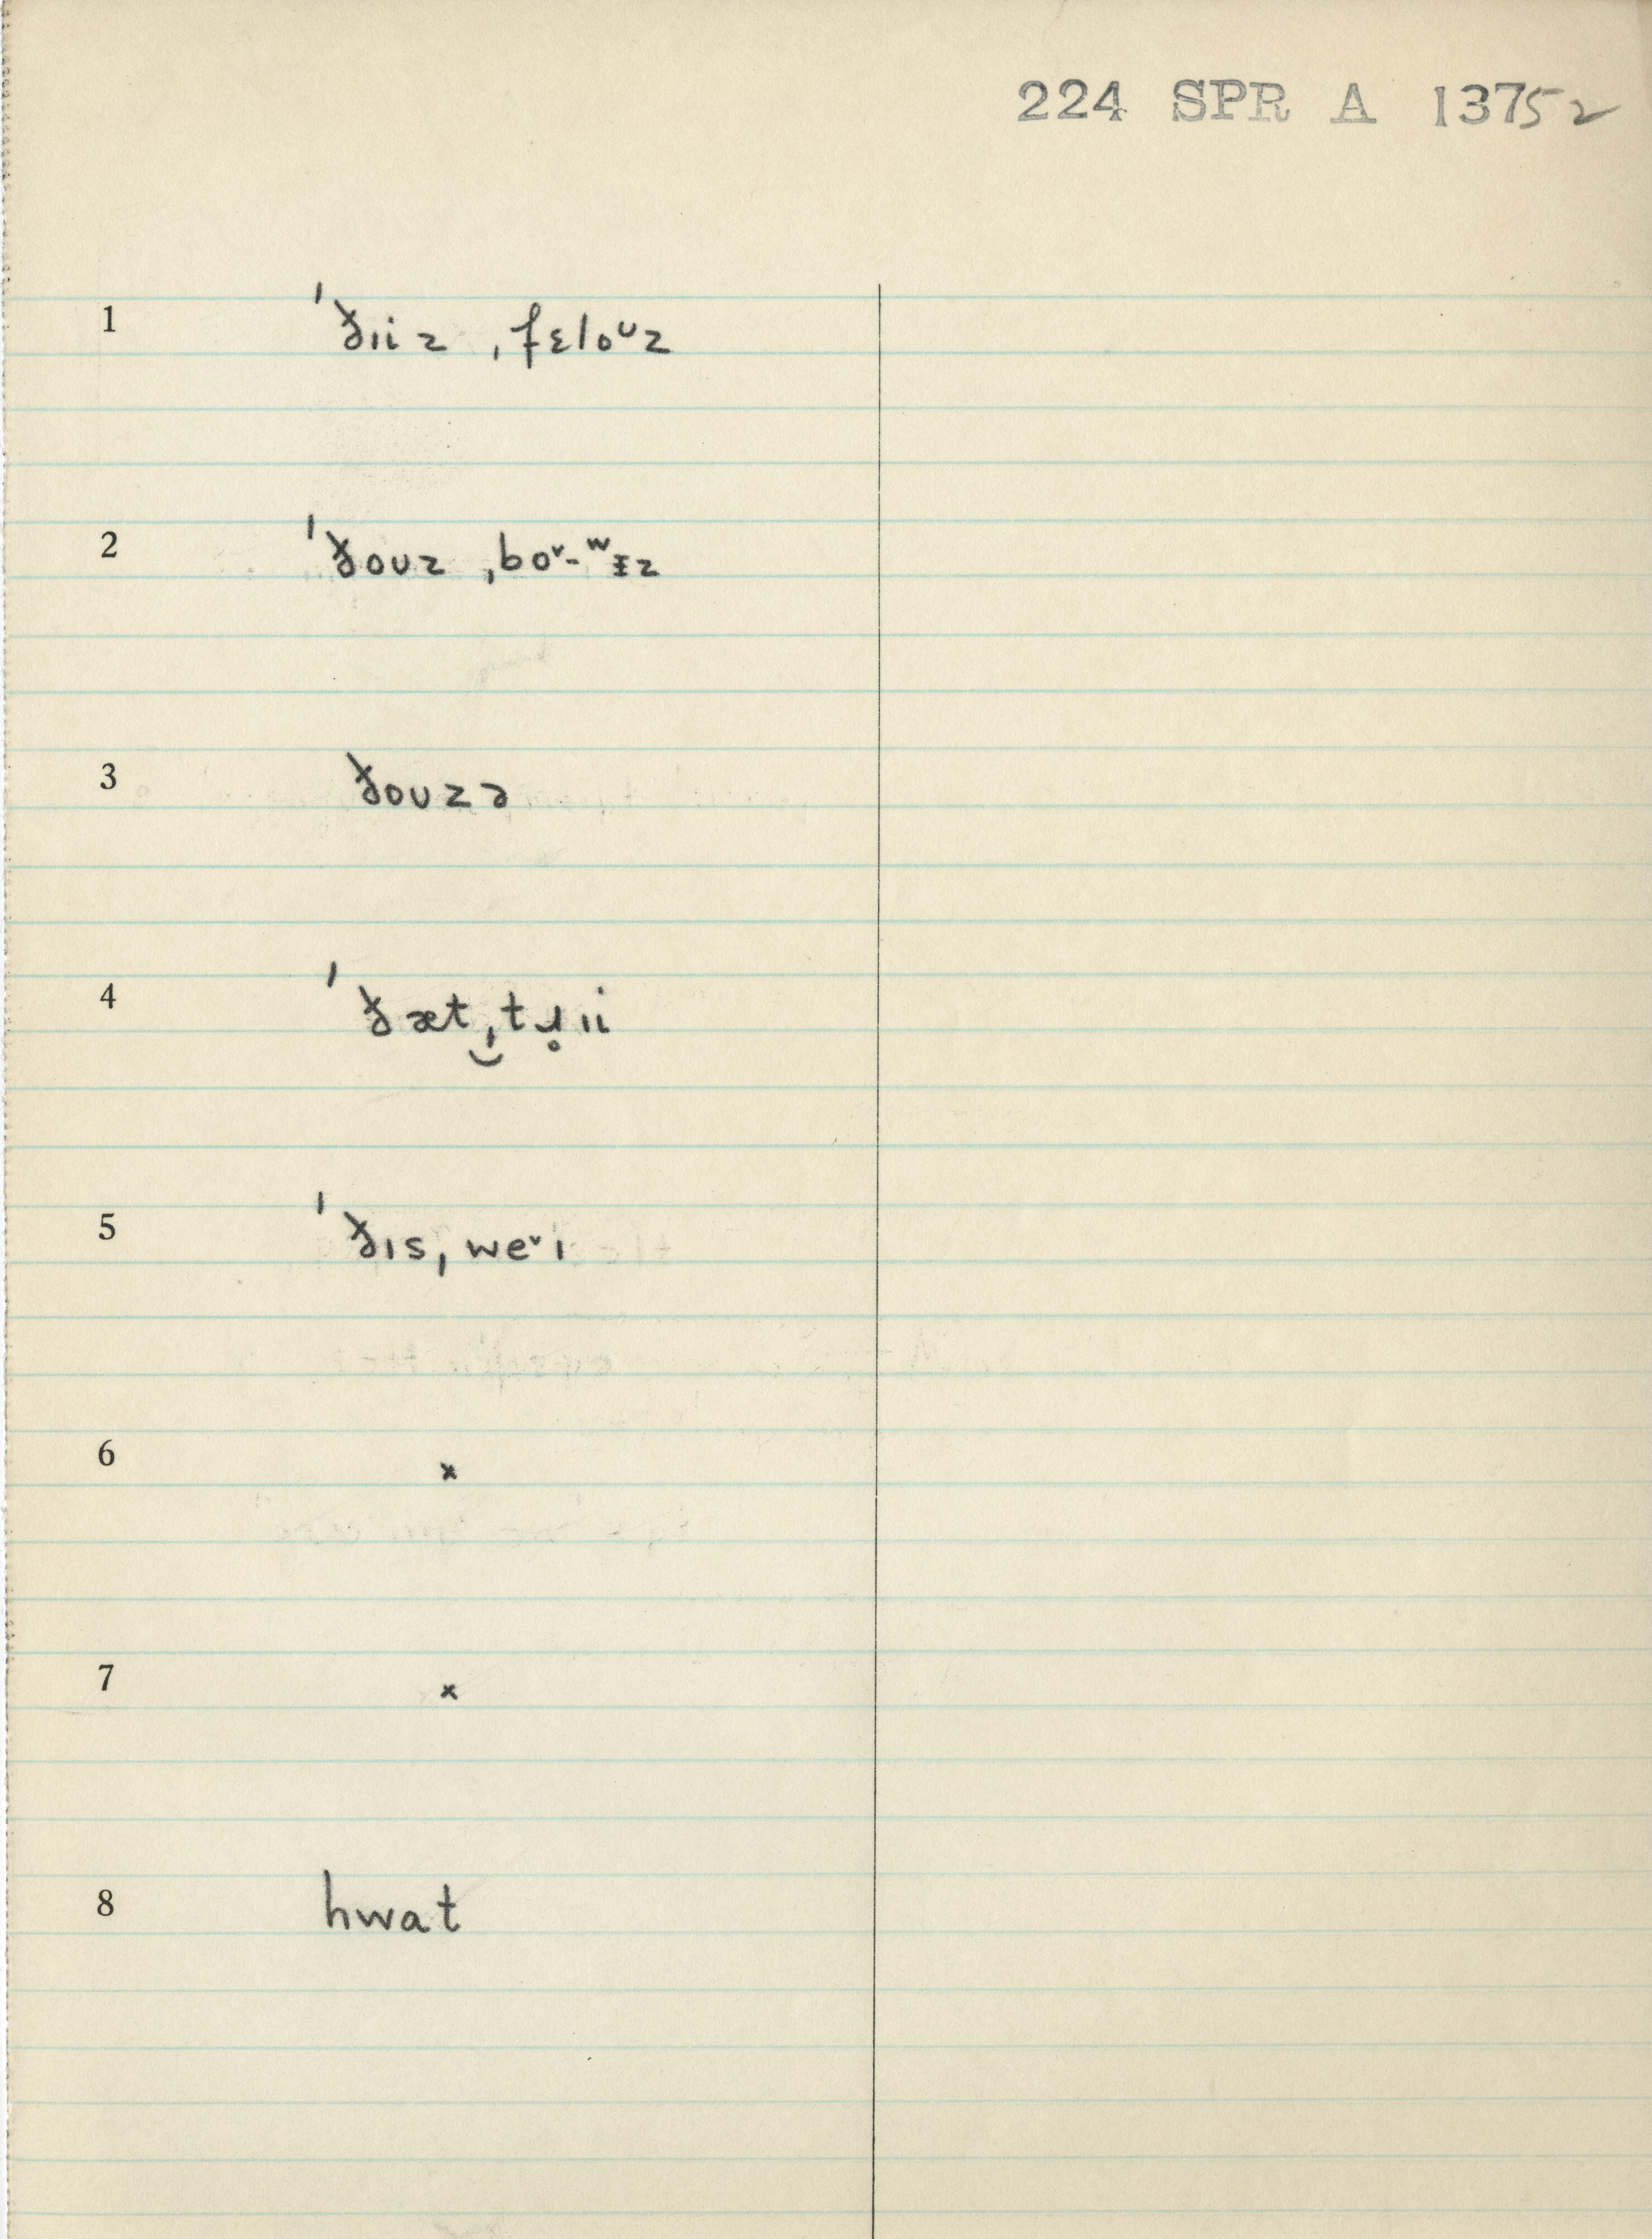 224 SPR A 13752
1 ˈðɪiz ˌfɛloᴜz
2 ˈðoʊz ˌboᵛ-ʷᵻz
3 ðoʊzə
4 ˈðæt‿ˌtɹ̥ɪi
5 ˈðɪs ˌweᵛɪ
6 x
7 x
8 hwat